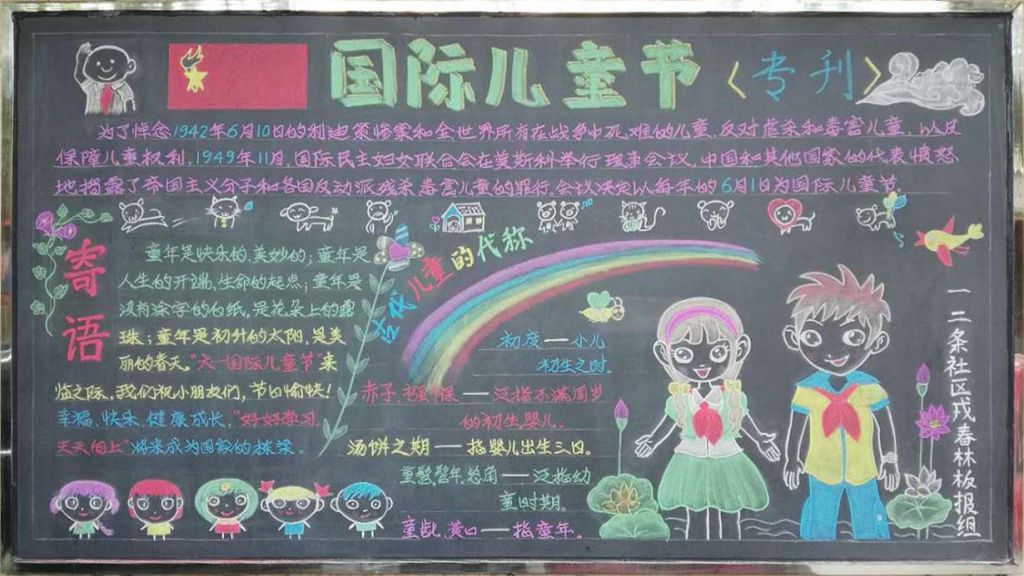 国际儿童节〈专刊〉
为了悼念1942年6月10日的利迪策惨案和全世界所有在战争中死难的儿童，反对虐杀和毒害儿童，以及
保障儿童权利，1949年11月，国际民主妇女联合会在莫斯科举行理事会议，中国和其他国家的代表愤怒
地揭露了帝国主义分子和各国反动派残杀毒害儿童的罪行，会议决定以每年的6月1日为国际儿童节。
寄语
童年是快乐的，美妙的；童年是
人生的开端，生命的起点；童年是
没有涂字的白纸，是花朵上的露
珠；童年是初升的太阳，是美
丽的春天。"六一国际儿童节"来
临之际，我们祝小朋友们，节日愉快！
幸福、快乐、健康成长，"好好学习，
天天向上"将来成为国家的栋梁。
古代儿童的代称
初度——小儿
初生之时。
赤子、襁褓——泛指不满周岁
的初生婴儿。
汤饼之期——指婴儿出生三日。
总角——泛指幼
童时期。
童龀、黄口——指童年。
一二条社区戍春林板报组